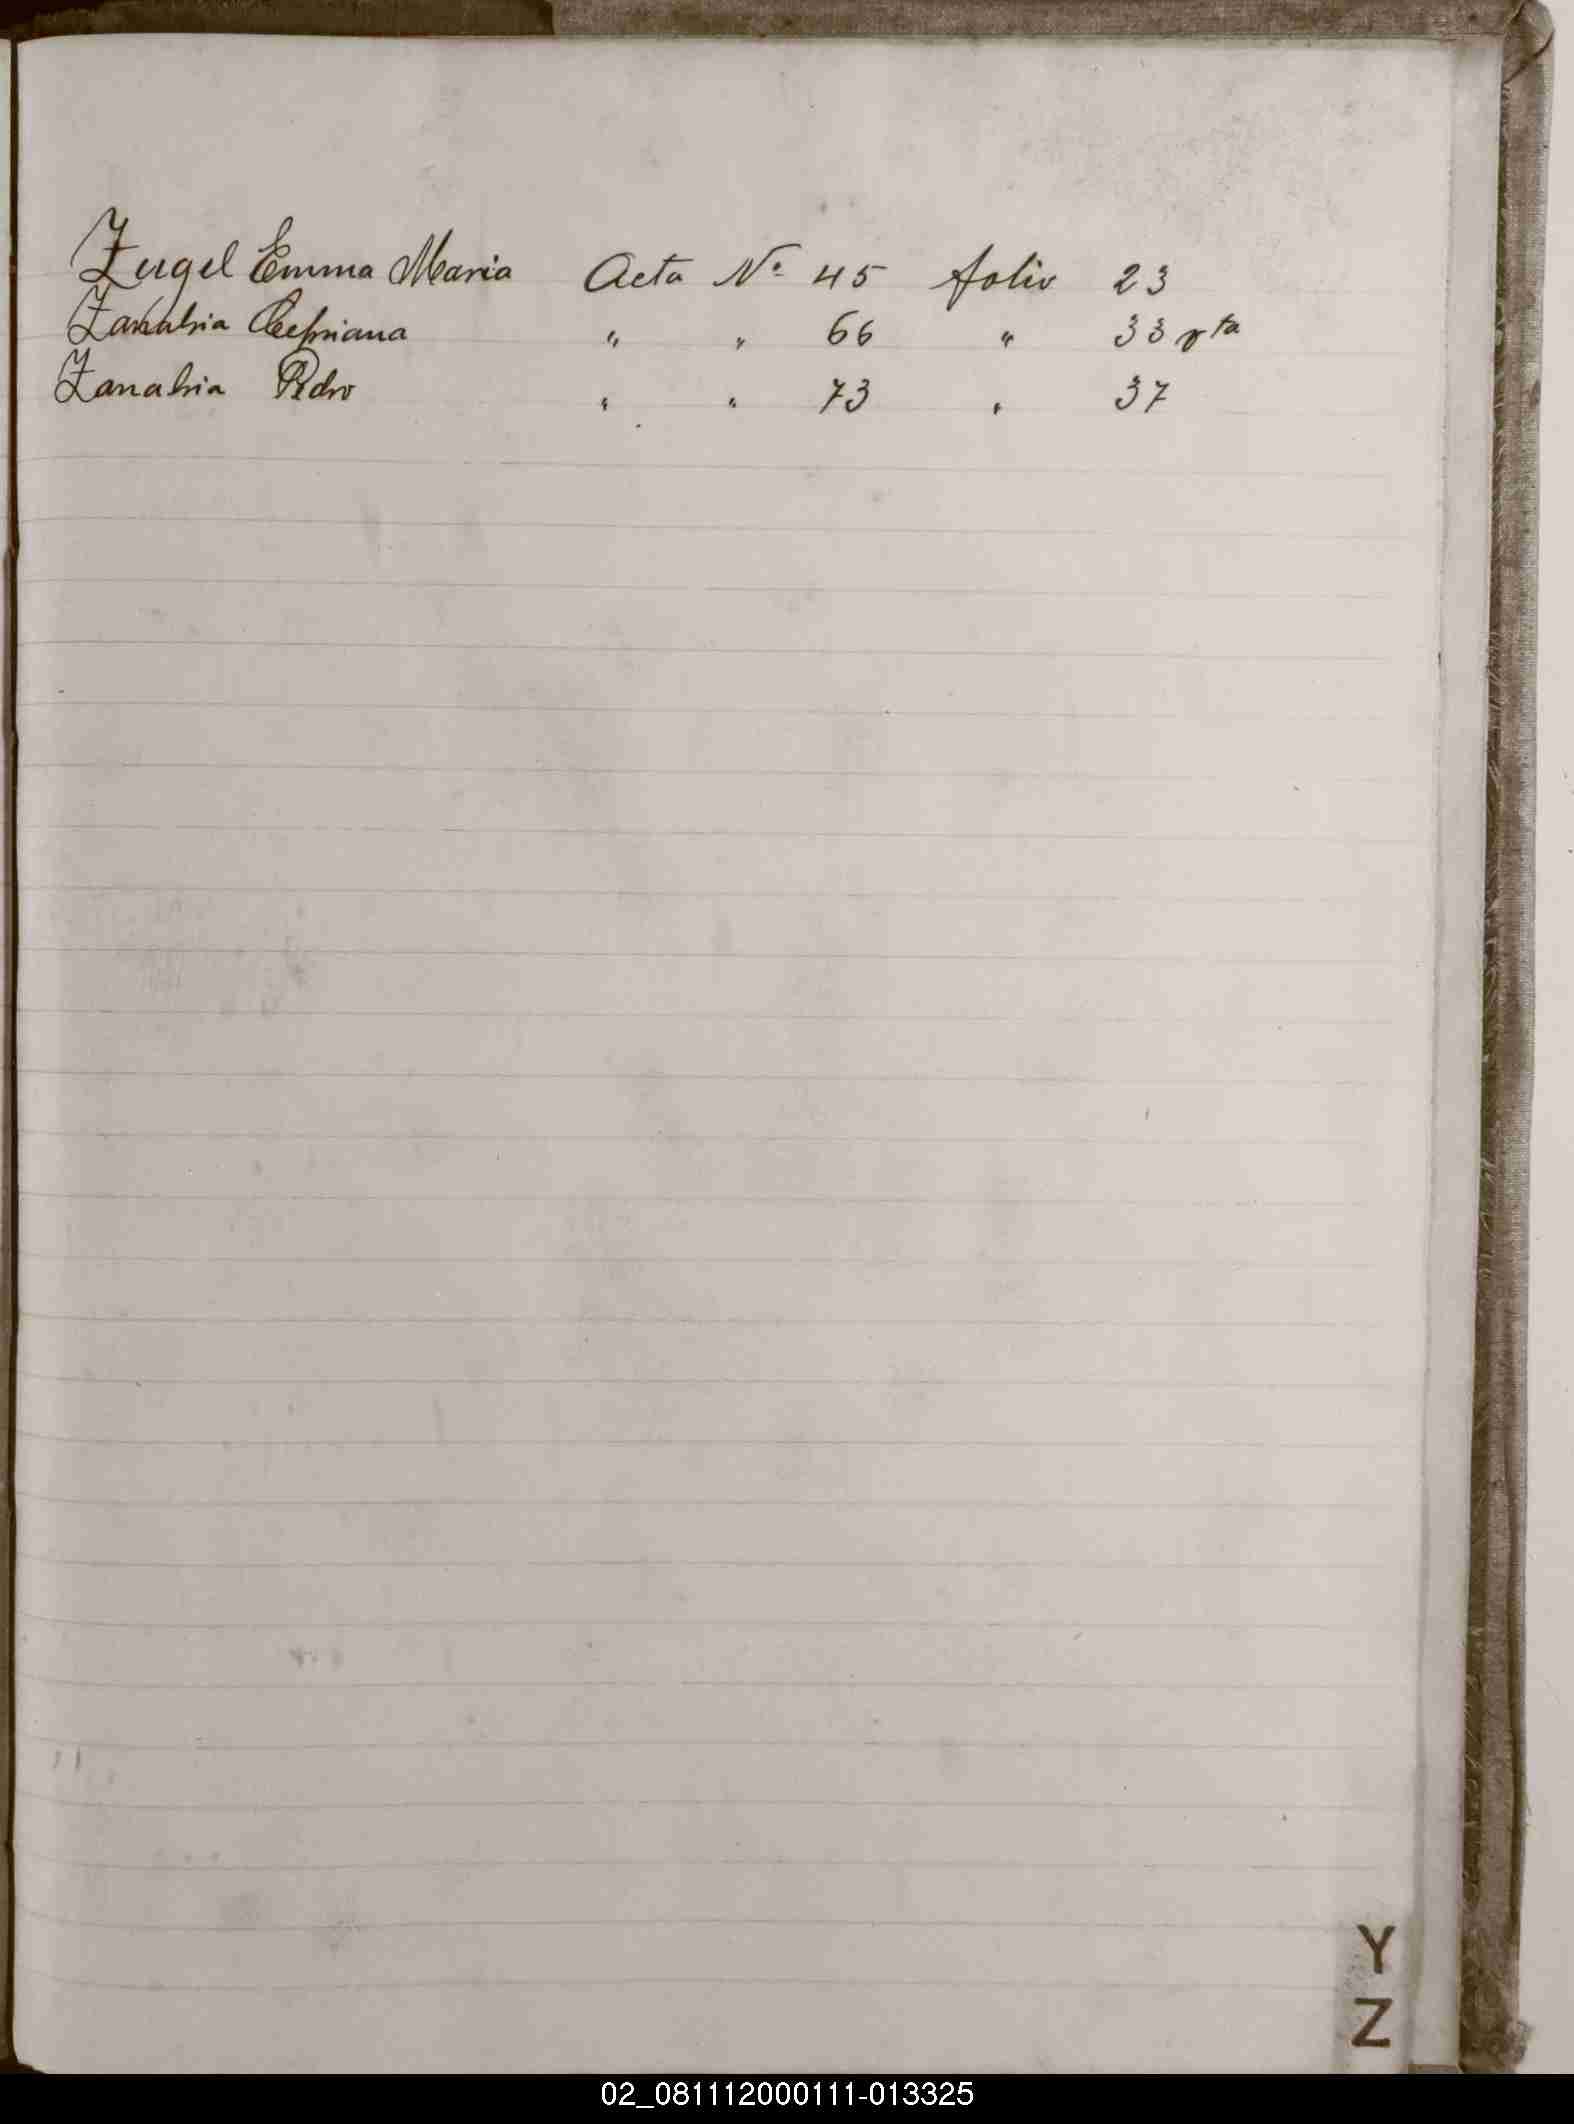 Zugel Emma Maria Acta Nº 45 folio 23
Zanabria Cipriana " " 66 " 33 vta
Zanabria Pedro " " 73 " 37
Y
Z
02_081112000111-013325